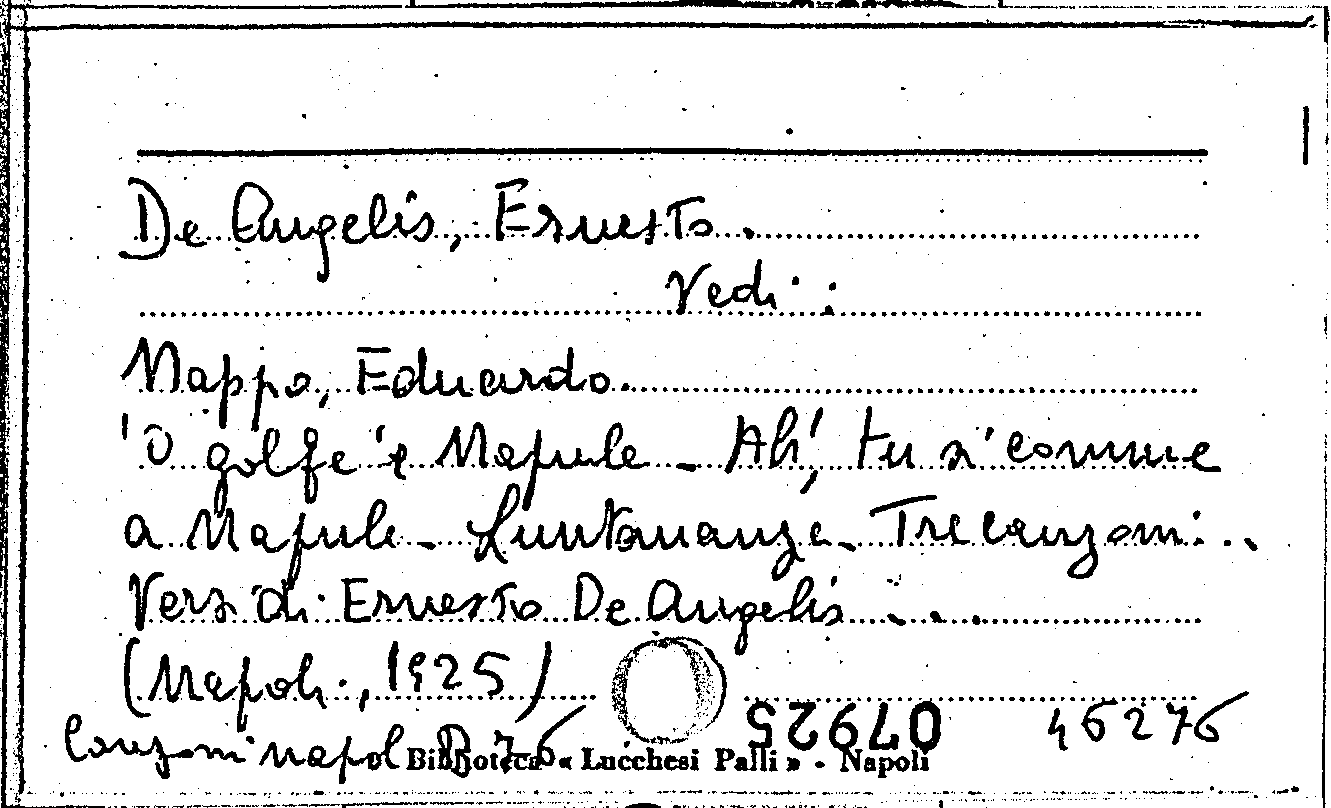 De Angelis, Ernesto.
Vedi:
Nappo, Eduardo.
'O golfe 'e Napule - Ah, tu si' comme
a Napule - Luntananze - Tre canzoni...
Versi di Ernesto De Angelis ...
(Napoli, 1925)
Canzoni napol B 76
07925
46276
Biblioteca « Lucchesi Palli » - Napoli